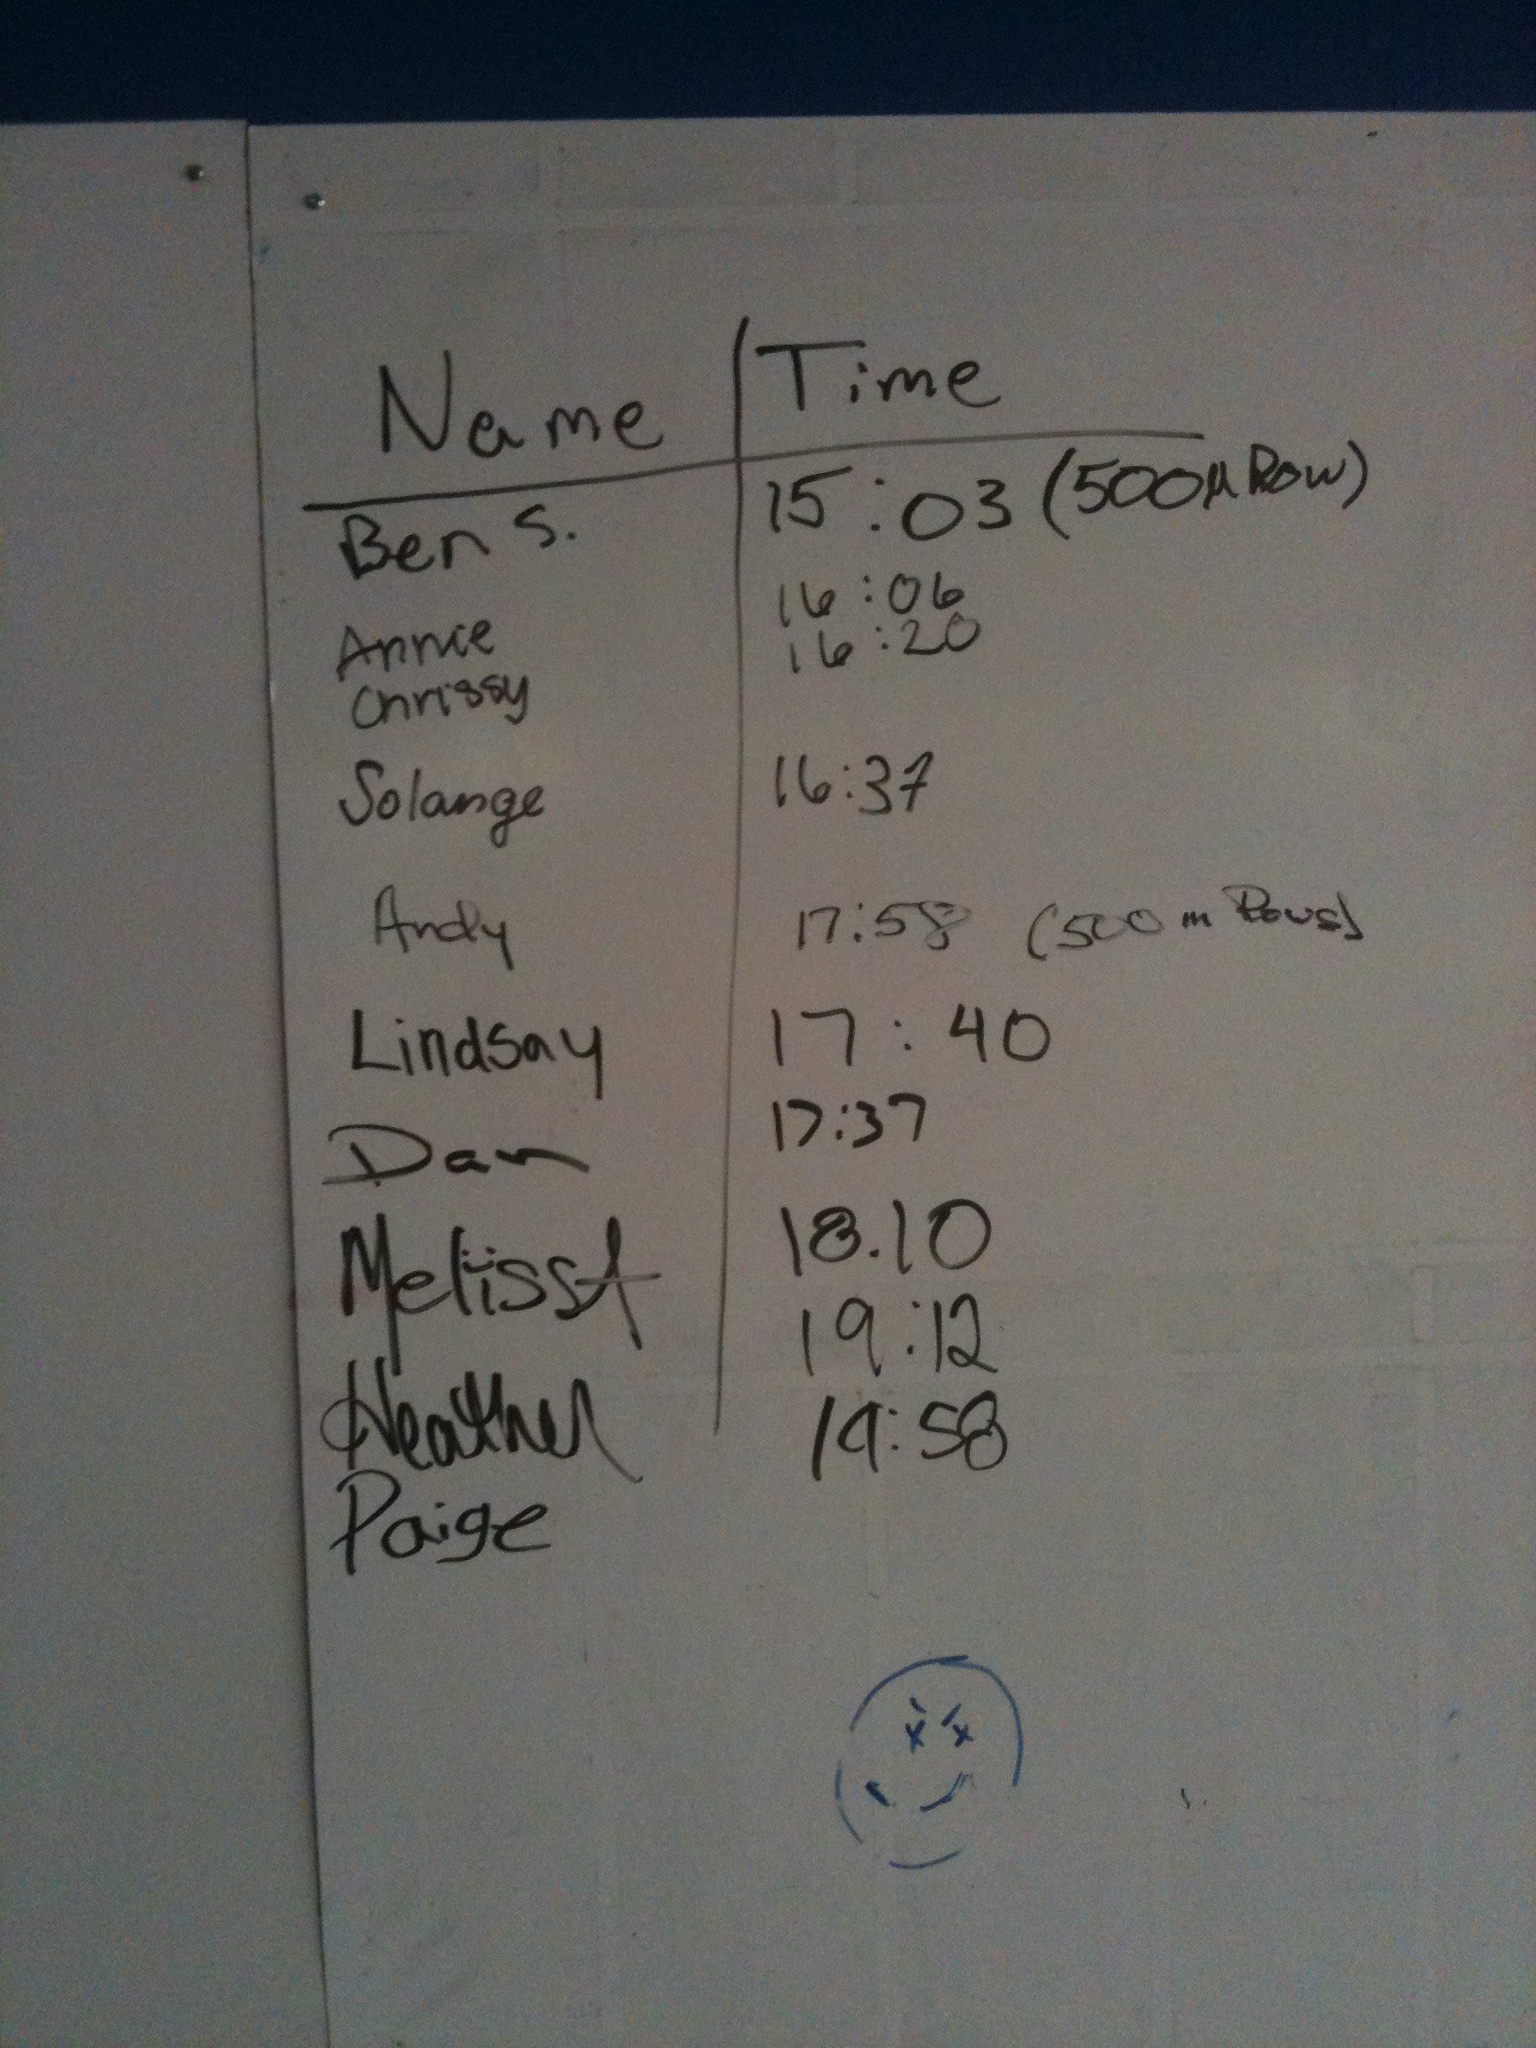 Name Time
Ben S. 15:03 (500M Row)
Annie 16:06
Chrissy 16:20
Solange 16:37
Andy 17:58 (500 m Rows)
Lindsay 17:40
Dan 17:37
Melissa 18.10
Heather 19:12
Paige 19:58